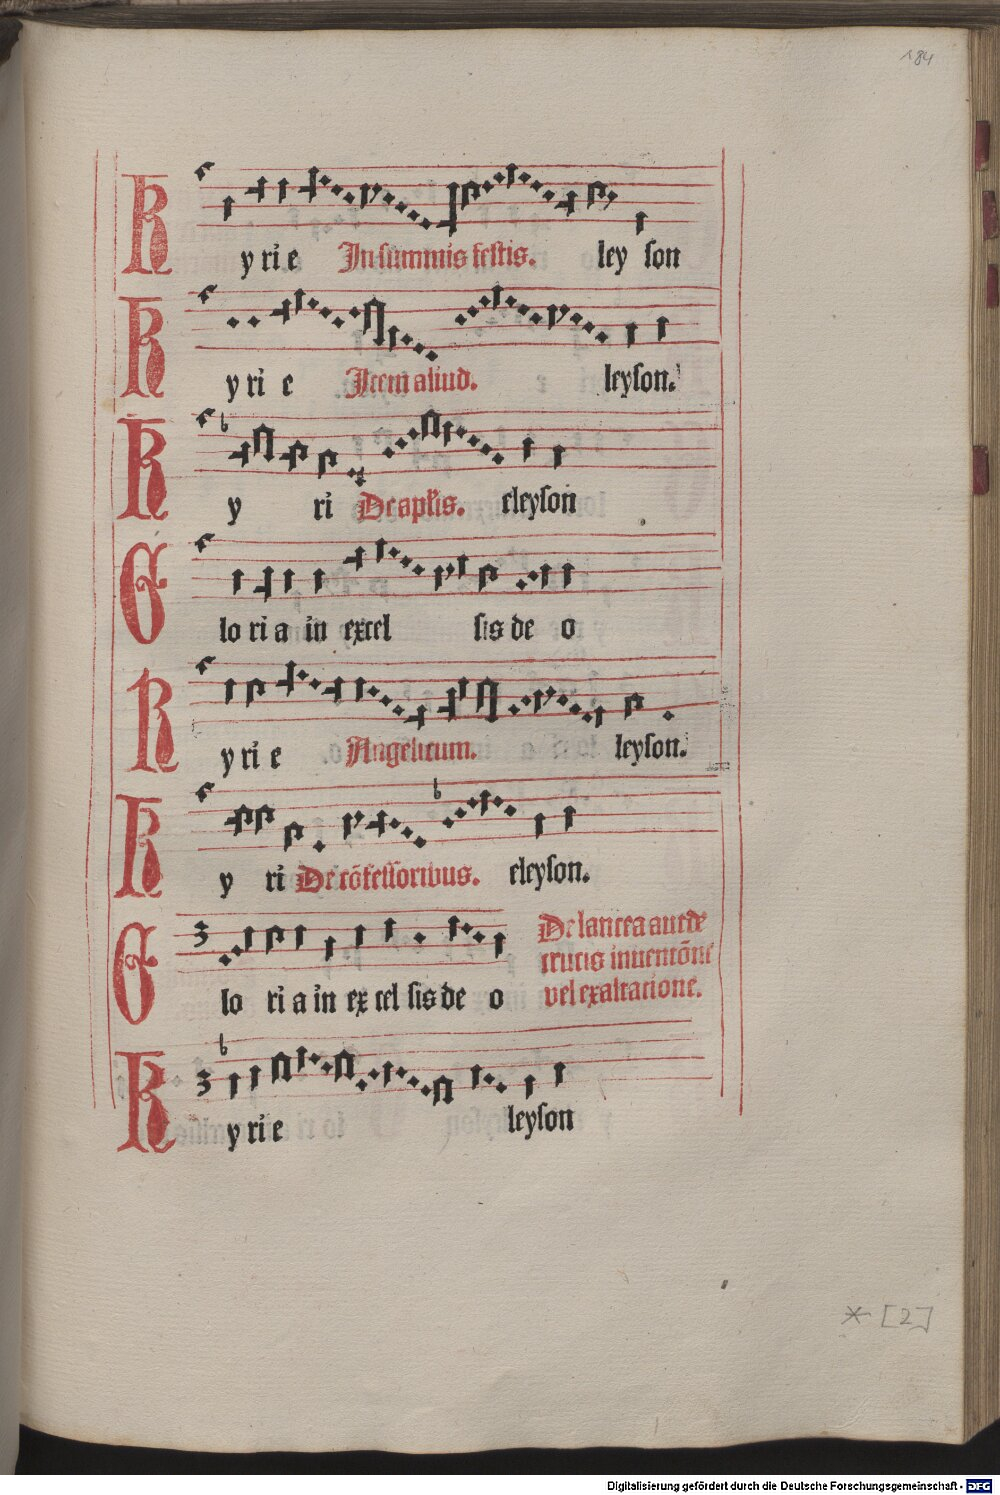 184
Kyrie In summis festis. ley son
Kyrie Item aliud. leyson.
Ky ri De aplis. eleyson
Gloria in excel sis de o
Kyrie Angelicum. leyson.
Ky ri De cõfessoribus. eleyson.
Glo ri a in ex cel sis de o
De lancea aut de
crucis inuentõne
vel exaltacione.
Kyrie leyson
* [2]
Digitalisierung gefördert durch die Deutsche Forschungsgemeinschaft - DFG